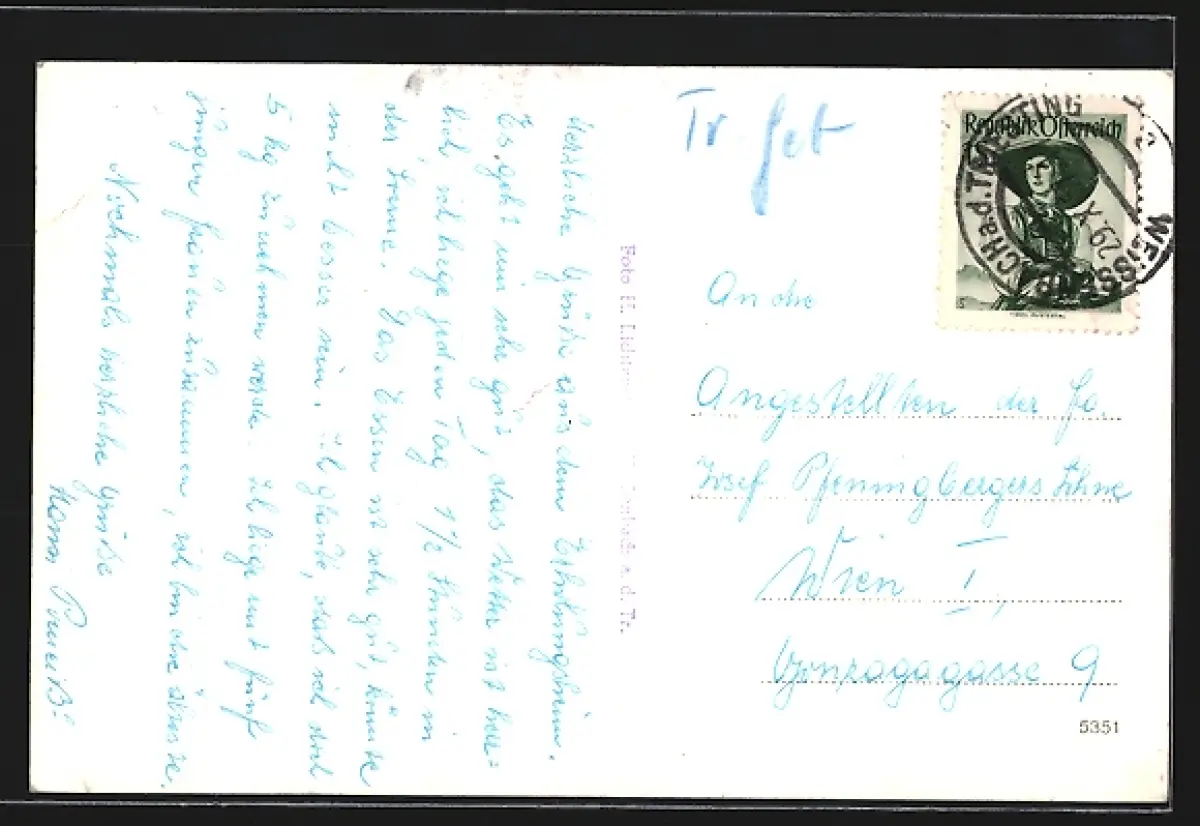 Herzliche Grüße aus dem Erholungsheim.
Es geht mir sehr gut, das Wetter ist herr=
lich, ich liege jeden Tag 1 1/2 Stunden in
der Sonne. Das Essen ist sehr gut, könnte
nicht besser sein. Ich glaube, daß ich viel
5 kg zunehmen werde. Ich liege mit fünf
jungen Frauen zusammen, ich bin die älteste.
Nochmals herzliche Grüße
Foto H. a. d. Tr.
Tr. Get
Republik Österreich
WEISSENBACH a.d. TRIESTING
29. X.
An die
Angestellten der Fa.
Josef Pfenningbergers Söhne
Wien I,
Gonzagagasse 9
5351